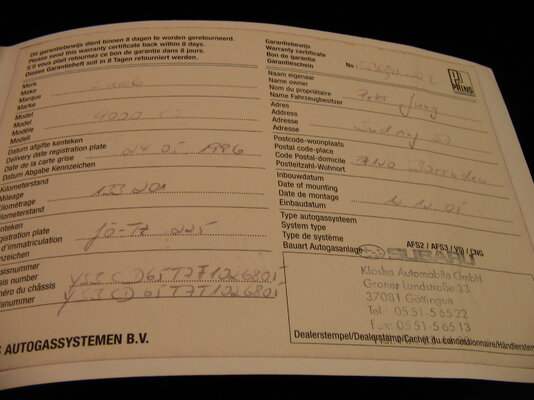 Dit garantiebewijs dient binnen 8 dagen te worden geretourneerd.
Please send this warranty certificate back within 8 days.
S'il vous plait retournez ce bon de garantie dans 8 jours.
Dieses Garantieheft soll in 8 Tagen retourniert werden.
Merk
Make
Marque
Marke
Model
Model
Modèle
Modell
9000
Datum afgifte kenteken
Delivery date registration plate
Date de la carte grise
Datum Abgabe Kennzeichen
24 05 1996
Kilometerstand
Mileage
Kilométrage
Kilometerstand
133 201
enteken
gistration plate
d'immatriculation
nzeichen
225
sisnummer
sis number
éro du châssis
sisnummer
YS3CD65T7T1026805
YS3CD65T7T1026805
AUTOGASSYSTEMEN B.V.
Garantiebewijs
Warranty certificate
Bon de garantie
Garantieschein
No
PRINS
Naam eigenaar
Name owner
Nom du propriétaire
Name Fahrzeugbesitzer
Peter
Adres
Address
Adresse
Adresse
Postcode-woonplaats
Postal code-place
Code Postal-domicile
Postleitzahl-Wohnort
Inbouwdatum
Date of mounting
Date de montage
Einbaudatum
Type autogassysteem
System type
Type de système
Bauart Autogasanlage
AFS2 / AFS3 / VSI / CNG
SUBARU
Kloska Automobile GmbH
Groner Landstraße 33
37081 Göttingen
Tel.: 05 51-5 65 22
Fax: 05 51-5 65 13
Dealerstempel/Dealerstamp/Cachet du concessionnaire/Händlerstem